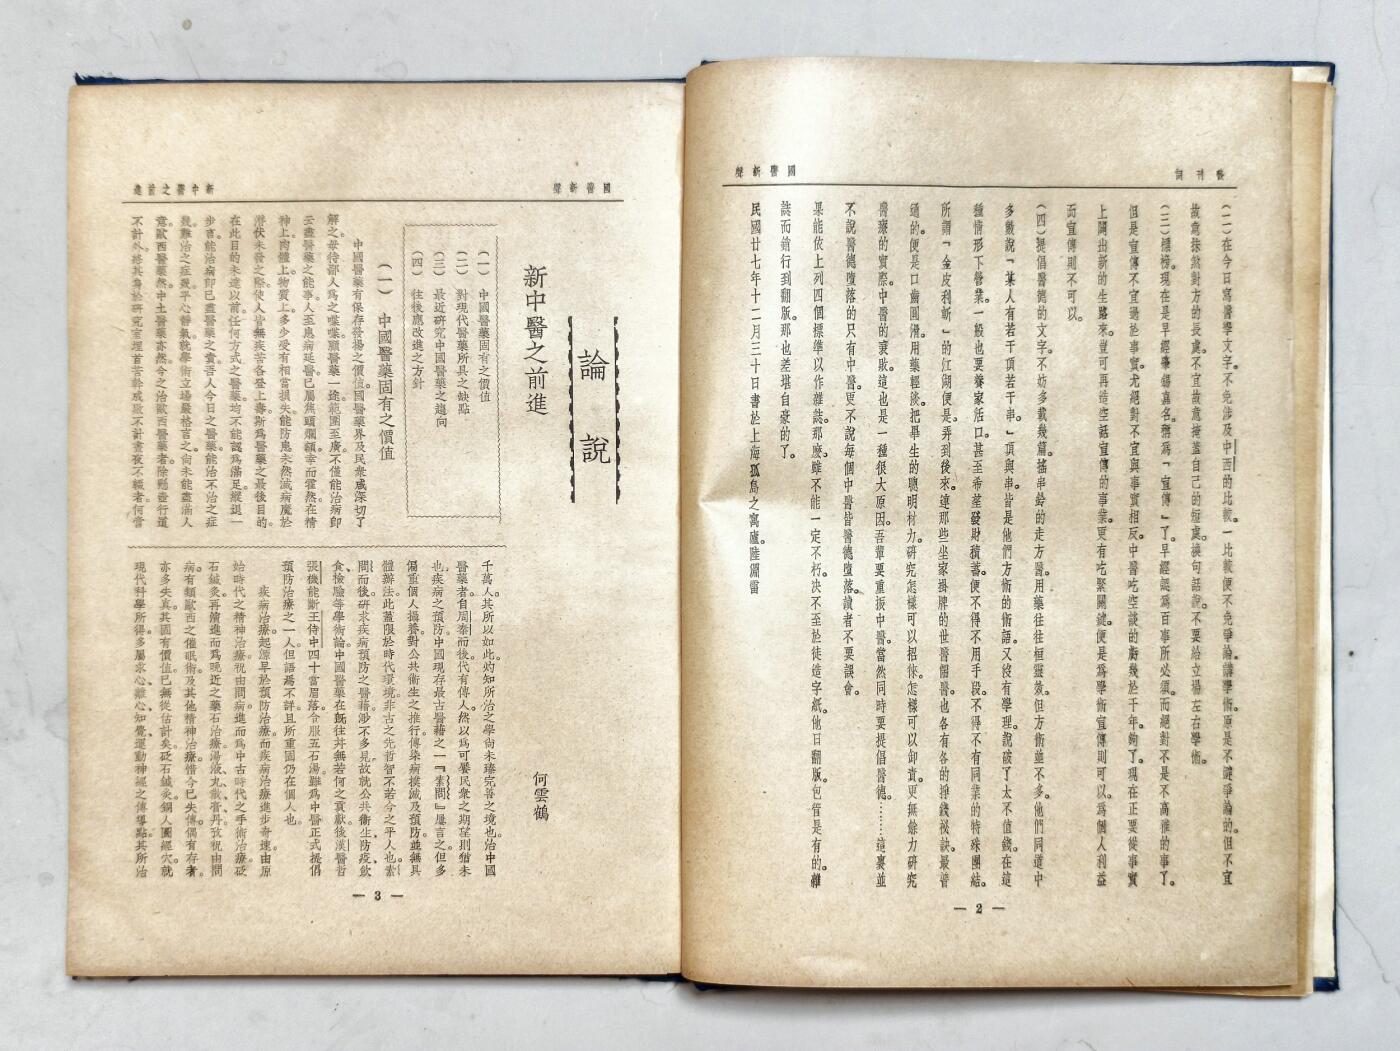 發刊詞
國醫新聲
(二)在今日寫醫學文字。不免涉及中西的比較。一比較便不免爭論。講學術。原是不避爭論的。但不宜
故意抹煞對方的長處。不宜故意掩蓋自己的短處。換句話說。不要給立場左右學術。
(三)標榜。現在是早經肇錫嘉名。稱爲「宣傳」了。早經認爲百事所必須。而絕對不是不高雅的事了。
但是宣傳不宜過於事實。尤絕對不宜與事實相反。中醫吃空談的虧。幾於千年。夠了。現在正要從事實
上闢出新的生路來。豈可再造空話宣傳的事業。更有吃緊關鍵。便是爲學術宣傳則可以。爲個人利益
而宣傳則不可以。
(四)提倡醫德的文字。不妨多載幾篇。搖串鈴的走方醫。用藥往往桓靈效。但方術並不多。他們同道中
多數說「某人有若干頂若干串」頂與串。皆是他們方術的術語。又沒有學理。說破了太不值錢。在這
種情形下營業。一般也要養家活口。甚至希望發財積蓄。便不得不用手段。不得不有同業的特殊團結。
所謂「金皮利斬」的江湖便是。弄到後來。連那些坐家掛牌的世醫韶醫。也各有各的掙錢祕訣。最普
通的。便是口齒圓滑。用藥輕淡。把畢生的聰明材力。研究怎樣可以招徠。怎樣可以卸責。更無餘力研究
醫療的實際。中醫的衰敗。這也是一種很大原因。吾輩要重振中醫。當然同時要提倡醫德……這裏並
不說醫德墮落的只有中醫。更不說每個中醫皆醫德墮落。讀者不要誤會。
果能依上列四個標準以作雜誌。那麼。雖不能一定不朽。決不至於徒造字紙。他日翻版。包管是有的。雜
誌而銷行到翻版。那也差堪自豪的了。
民國廿七年十二月三十日書於上海孤島之寓廬陸淵雷
— 2 —
國醫新聲
新中醫之前進
論說
新中醫之前進
何雲鶴
(一) 中國醫藥固有之價值
(二) 對現代醫藥所具之缺點
(三) 最近研究中國醫藥之趨向
(四) 往後應改進之方針
(一) 中國醫藥固有之價值
中國醫藥有保存發揚之價值。國醫藥界及民衆咸深切了
解之。毋待鄙人爲之喋喋。顧醫藥一途。範圍至廣。不僅能治病即
云盡醫藥之能事。人至患病延醫。已屬焦頭爛額。幸而霍然。在精
神上肉體上。物質上。多少受有相當損失。能防患未然。滅病魔於
潛伏未發之際。使人皆無疾苦。各登上壽。斯爲醫藥之最後目的。
在此目的未達以前。任何方式之醫藥。均不能認爲滿足。縱退一
步言。能治病即已盡醫藥之責。吾人今日之醫藥。能治不治之症
幾。難治之症幾。平心靜氣。就學術立場。嚴格言之。尚未能盡滿人
意。歐西醫藥然。中土醫藥亦然。今之治歐西醫藥者。除懸壺行道
不計外。終其身於研究室。埋首苦幹。成敗不計。晝夜不輟者。何啻
千萬人。其所以如此。灼知所治之學。尚未臻完善之境也。治中國
醫藥者。自周秦而後。代有傳人。然以爲可饜民衆之期望則猶未
也。疾病之預防。中國現存最古醫籍之一『素問』屢言之。但多
偏重個人攝養。對公共衞生之推行。傳染病撲滅及預防。並無具
體辦法。此蓋限於時代環境。非古之先哲智不若今之乎人也。素
問而後。研求疾病預防之醫籍涉不多見。故就公共衞生防疫、飲
食檢驗等學術論。中國醫藥在既往幷無若何之貢獻。後漢醫哲
張機能斷王侍中四十當眉落。令服五石湯。雖爲中醫正式提倡
預防治療之一人。但語焉不詳。且所重固仍在個人也。
疾病治療。起源早於預防治療。而疾病治療進步奇速。由原
始時代之精神治療。祝由問病。進而爲中古時代之手術治療。砭
石鍼灸。再演進而爲晚近之藥石治療。湯液丸散膏丹。攷祝由問
病。有類歐西之催眠術。及其他精神治療。惜今已失傳。偶有存者。
亦多失眞。其固有價值。已無從估計矣。砭石鍼灸。銅人圖經穴。就
現代科學所得。多屬求心、離心、知覺、運動神經之傳導點。其所治
— 3 —